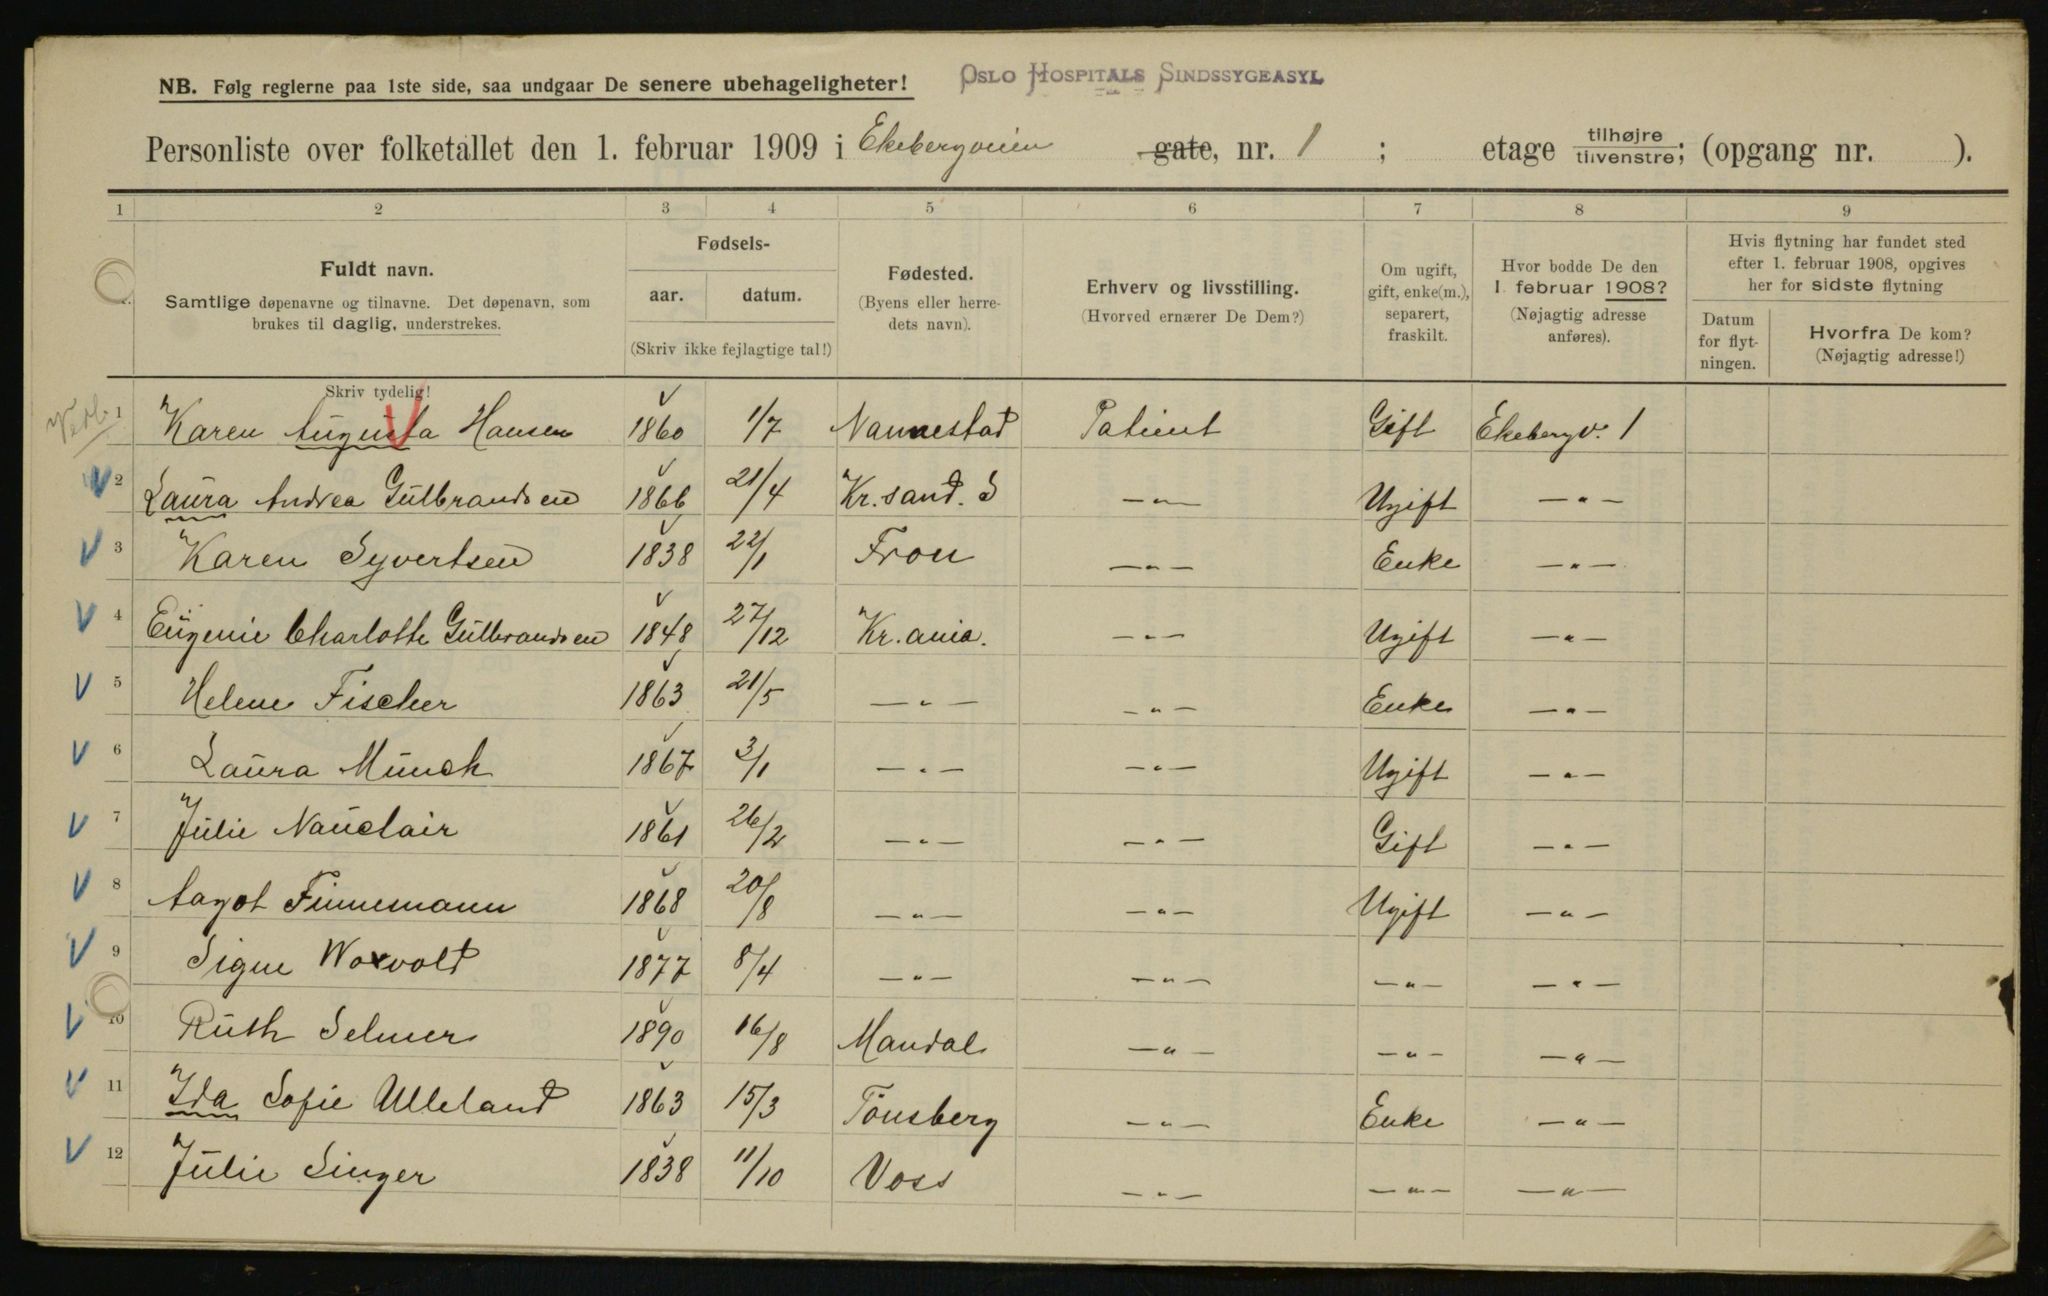 NB. Følg reglerne paa 1ste side, saa undgaar De senere ubehageligheter! OSLO HOSPITALS SINDSSYGEASYL
Personliste over folketallet den 1. februar 1909 i Ekebergveien gate, nr. 1 ; etage tilhøjre tilvenstre; (opgang nr. ).
1 2 3 4 5 6 7 8 9
Fuldt navn.
Samtlige døpenavne og tilnavne. Det døpenavn, som
brukes til daglig, understrekes.
Fødsels-
aar. datum.
(Skriv ikke fejlagtige tal!)
Fødested.
(Byens eller herre-
dets navn).
Erhverv og livsstilling.
(Hvorved ernærer De Dem?)
Om ugift,
gift, enke(m.),
separert,
fraskilt.
Hvor bodde De den
1. februar 1908?
(Nøjagtig adresse
anføres).
Hvis flytning har fundet sted
efter 1. februar 1908, opgives
her for sidste flytning
Datum
for flyt-
ningen.
Hvorfra De kom?
(Nøjagtig adresse!)
Skriv tydelig!
1 Karen Augusta Hansen 1860 1/7 Nannestad Patient Gift Ekebergv. 1
2 Laura Andrea Gulbrandsen 1866 21/4 Kr.sand. S —"— Ugift —"—
3 Karen Syvertsen 1838 22/1 Fron —"— Enke —"—
4 Eugenie Charlotte Gulbrandsen 1848 27/12 Kr.ania. —"— Ugift —"—
5 Helene Fischer 1863 21/5 —"— —"— Enke —"—
6 Laura Munck 1867 3/1 —"— —"— Ugift —"—
7 Julie Nauclair 1861 26/2 —"— —"— Gift —"—
8 Aagot Finnemann 1868 20/8 —"— —"— Ugift —"—
9 Signe Woxvold 1877 8/4 —"— —"— —"— —"—
10 Ruth Selmer 1890 16/8 Mandal —"— —"— —"—
11 Ida Sofie Ulleland 1863 15/3 Tönsberg —"— Enke —"—
12 Julie Singer 1838 11/10 Voss —"— —"— —"—